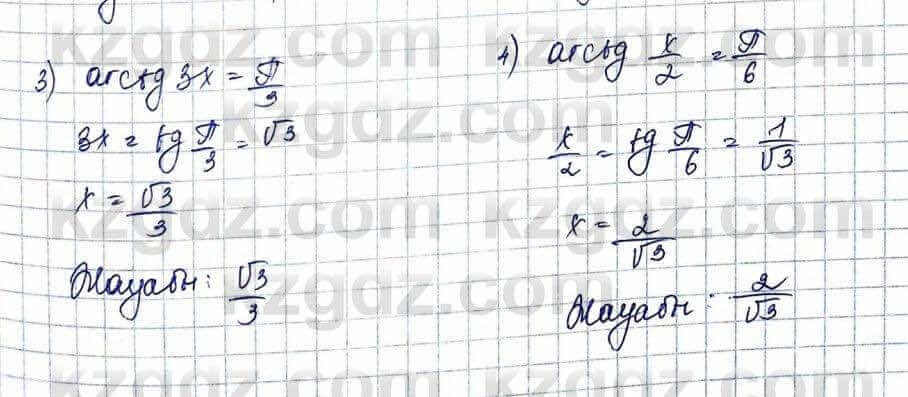 3) arctg 3x = π/3
3x = tg π/3 = √3
x = √3/3
Жауабы: √3/3
4) arctg x/2 = π/6
x/2 = tg π/6 = 1/√3
x = 2/√3
Жауабы: 2/√3
kzgdz.com
kzgdz.com
kzgdz.com